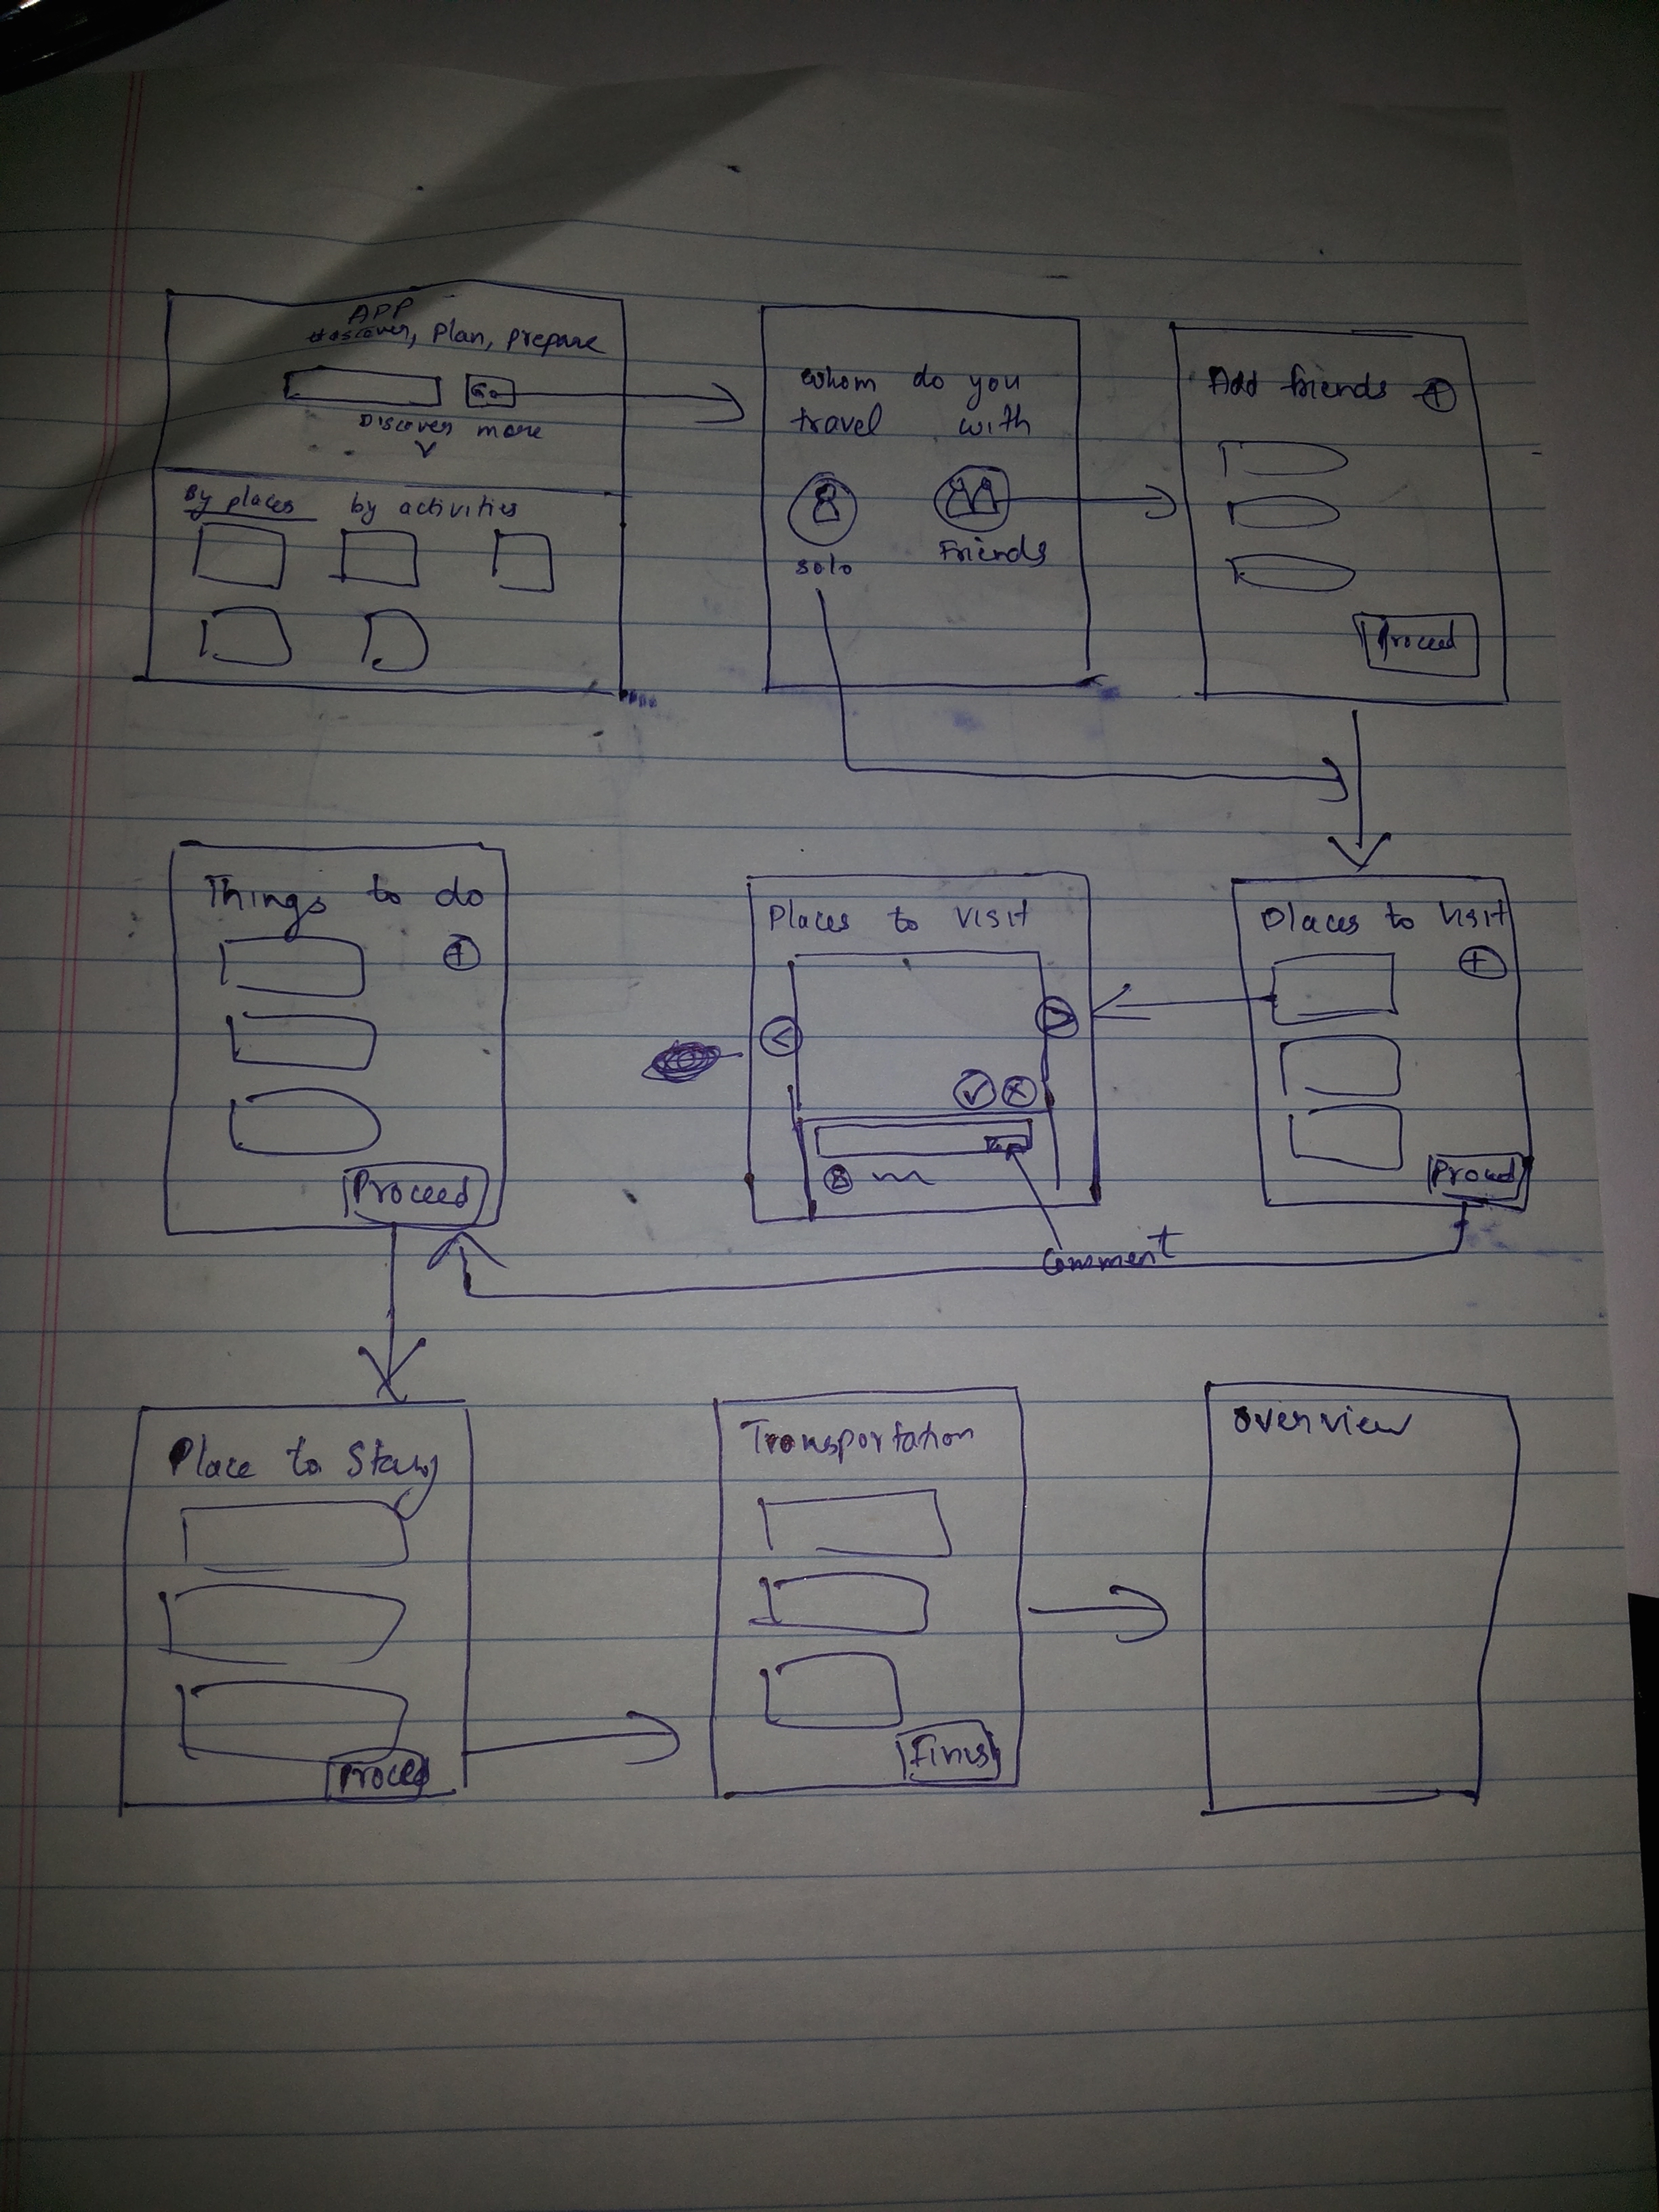 APP
Discover, Plan, prepare
Go
Discover more
By places by activities
Whom do you
travel with
solo
Friends
Add friends
Proceed
Things to do
Proceed
Places to visit
comment
Places to visit
Proceed
Place to Stay
Proceed
Transportation
Finish
overview